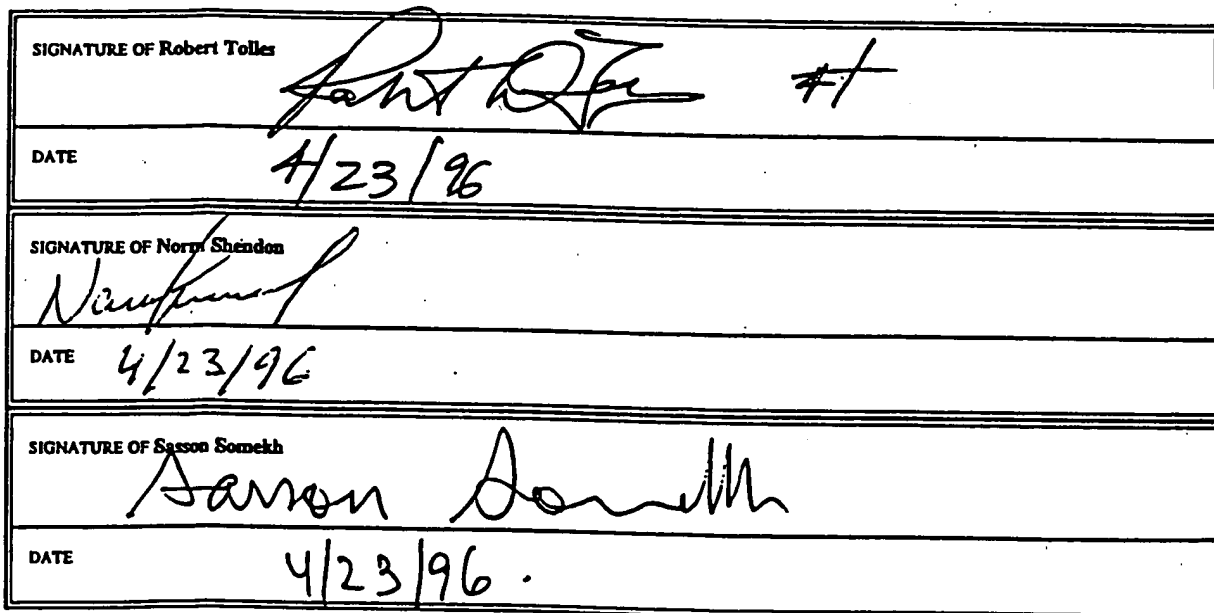 SIGNATURE OF Robert Tolles
DATE 4/23/96
SIGNATURE OF Norm Shendon
DATE 4/23/96
SIGNATURE OF Sasson Somekh
Sasson Somekh
DATE 4/23/96.